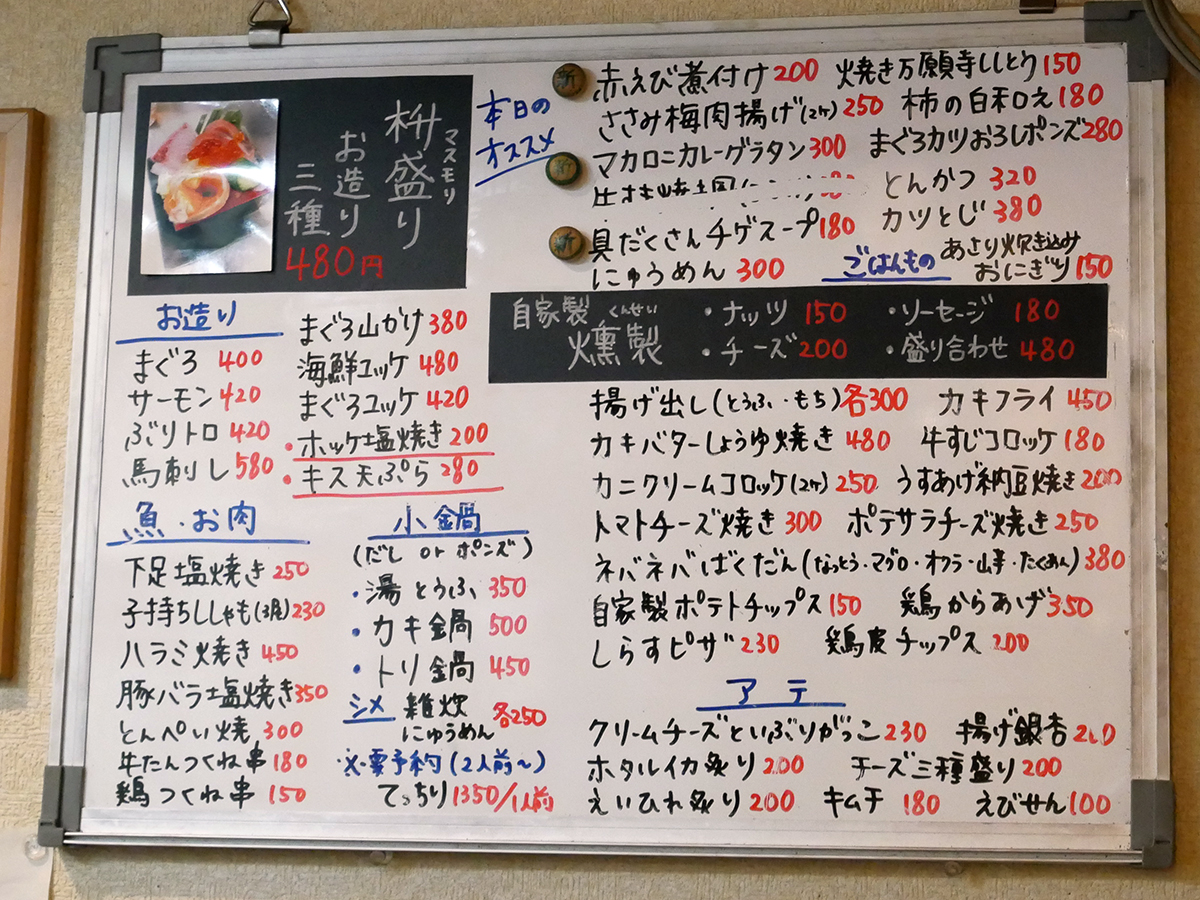 マスモリ
枡盛り
お造り
三種
480円
本日の
オススメ
新
赤えび煮付け 200 焼き万願寺ししとう 150
ささみ梅肉揚げ(2ヶ) 250 柿の白和え 180
新
マカロニカレーグラタン 300 まぐろカツおろしポンズ 280
とんかつ 320
新
具だくさんチゲスープ 180 カツとじ 380
にゅうめん 300
ごはんもの
あさり炊き込み
おにぎり 150
自家製 くんせい
燻製
・ナッツ 150 ・ソーセージ 180
・チーズ 200 ・盛り合わせ 480
お造り
まぐろ 400
サーモン 420
ぶりトロ 420
馬刺し 580
まぐろ山かけ 380
海鮮ユッケ 480
まぐろユッケ 420
・ホッケ塩焼き 200
・キス天ぷら 280
魚・お肉
下足塩焼き 250
子持ちししゃも(3尾) 230
ハラミ焼き 450
豚バラ塩焼き 350
とんぺい焼 300
牛たんつくね串 180
鶏つくね串 150
小鍋
(だし or ポンズ)
・湯とうふ 350
・カキ鍋 500
・トリ鍋 450
シメ 雑炊
にゅうめん 各250
※要予約(2人前〜)
てっちり 1350/1人前
揚げ出し(とうふ・もち)各300 カキフライ 450
カキバターしょうゆ焼き 480 牛すじコロッケ 180
カニクリームコロッケ(2ヶ) 250 うすあげ納豆焼き 200
トマトチーズ焼き 300 ポテサラチーズ焼き 250
ネバネバばくだん(なっとう・マグロ・オクラ・山芋・たくあん) 380
自家製ポテトチップス 150 鶏からあげ 350
しらすピザ 230 鶏皮チップス 200
アテ
クリームチーズといぶりがっこ 230 揚げ銀杏 200
ホタルイカ炙り 200 チーズ三種盛り 200
えいひれ炙り 200 キムチ 180 えびせん 100